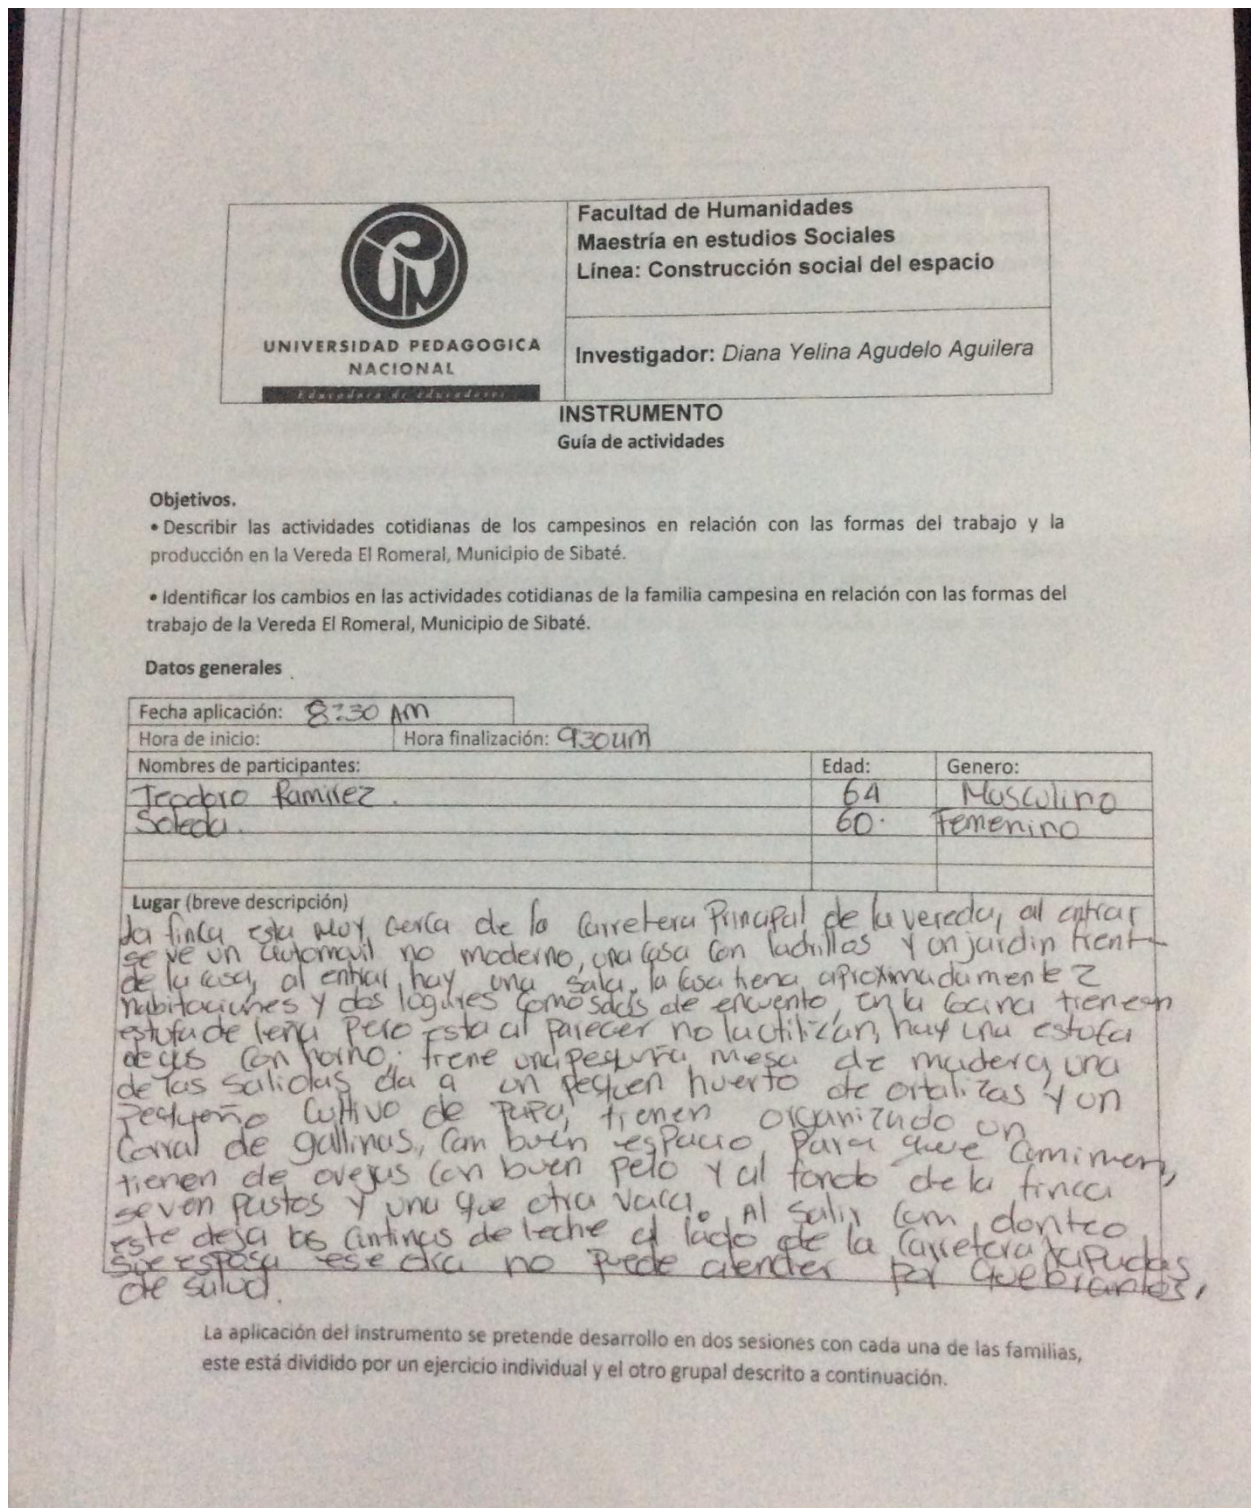 Facultad de Humanidades
Maestría en estudios Sociales
Línea: Construcción social del espacio
UNIVERSIDAD PEDAGOGICA
NACIONAL
Educadora de educadores
Investigador: Diana Yelina Agudelo Aguilera
INSTRUMENTO
Guía de actividades
Objetivos.
• Describir las actividades cotidianas de los campesinos en relación con las formas del trabajo y la
producción en la Vereda El Romeral, Municipio de Sibaté.
• Identificar los cambios en las actividades cotidianas de la familia campesina en relación con las formas del
trabajo de la Vereda El Romeral, Municipio de Sibaté.
Datos generales
Fecha aplicación: 8:30 AM
Hora de inicio: Hora finalización: 930
Nombres de participantes: Edad: Genero:
Teodoro Ramirez. 64 Musculino
Soleda. 60. Femenino
Lugar (breve descripción)
la finca esta muy cerca de la carretera Principal de la vereda, al entrar
se ve un automovil no moderno, una casa con ladrillos y un jardin frent
de la casa, al entrar hay una sala, la casa tiene aproximadamente 2
habitaciones y dos lugares como salas de encuento, en la cocina tienen
estufa de leña pero esta al parecer no la utilizan, hay una estufa
de gas con horno, tiene una pequeña mesa de madera, una
de las salidas da a un pequen huerto de ortalizas y un
pequeño cultivo de papa, tienen organizado un
corral de gallinas, con buen espacio para que caminen,
tienen de ovejas con buen pelo y al fondo de la finca
se ven pastos y una que otra vaca. Al salir don
este deja las cantinas de leche al lado de la carretera tapadas
su esposa ese dia no puede atender por quebrantos,
de salud.
La aplicación del instrumento se pretende desarrollo en dos sesiones con cada una de las familias,
este está dividido por un ejercicio individual y el otro grupal descrito a continuación.